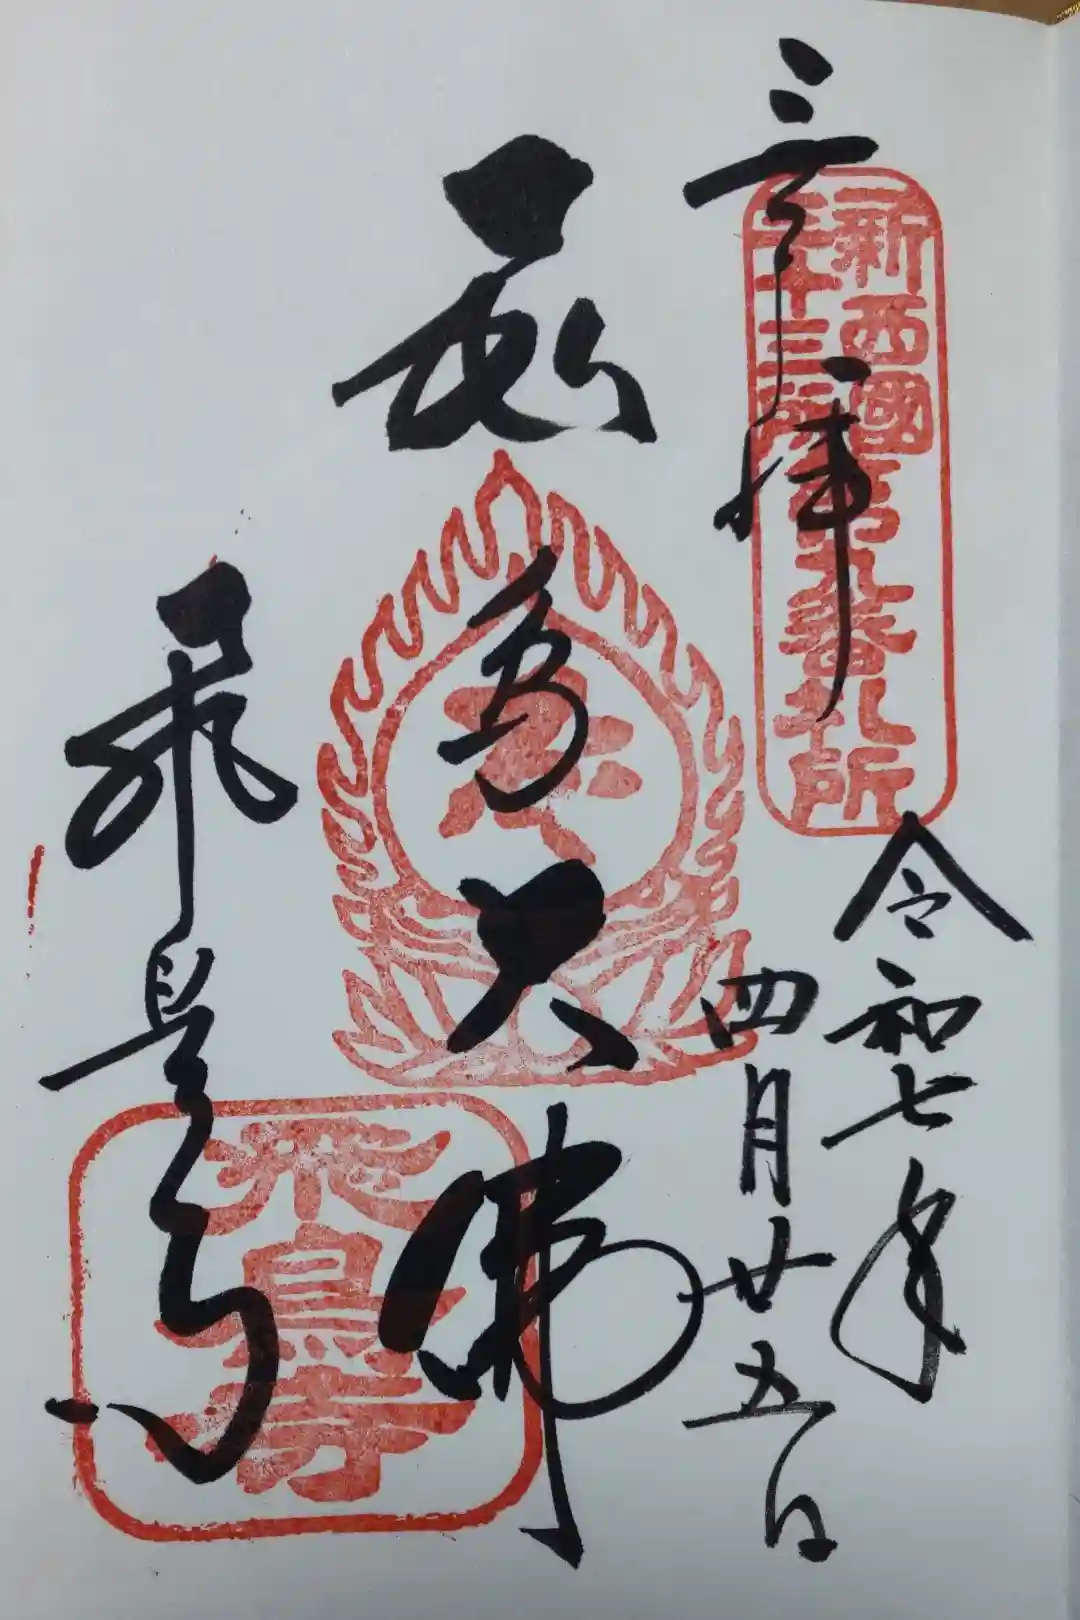 奉拝
新西國
三十三所
第九番札所
令和七年
四月廿五日
飛鳥大佛
飛鳥寺
飛鳥寺